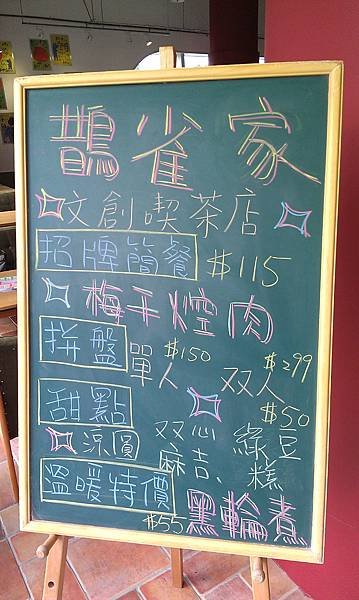 鵲雀家
文創喫茶店
招牌簡餐 $115
梅干焢肉
拼盤 單人 $150 双人 $299
甜點 $50
涼圓 双心麻吉、綠豆糕
溫暖特價
$55 黑輪煮